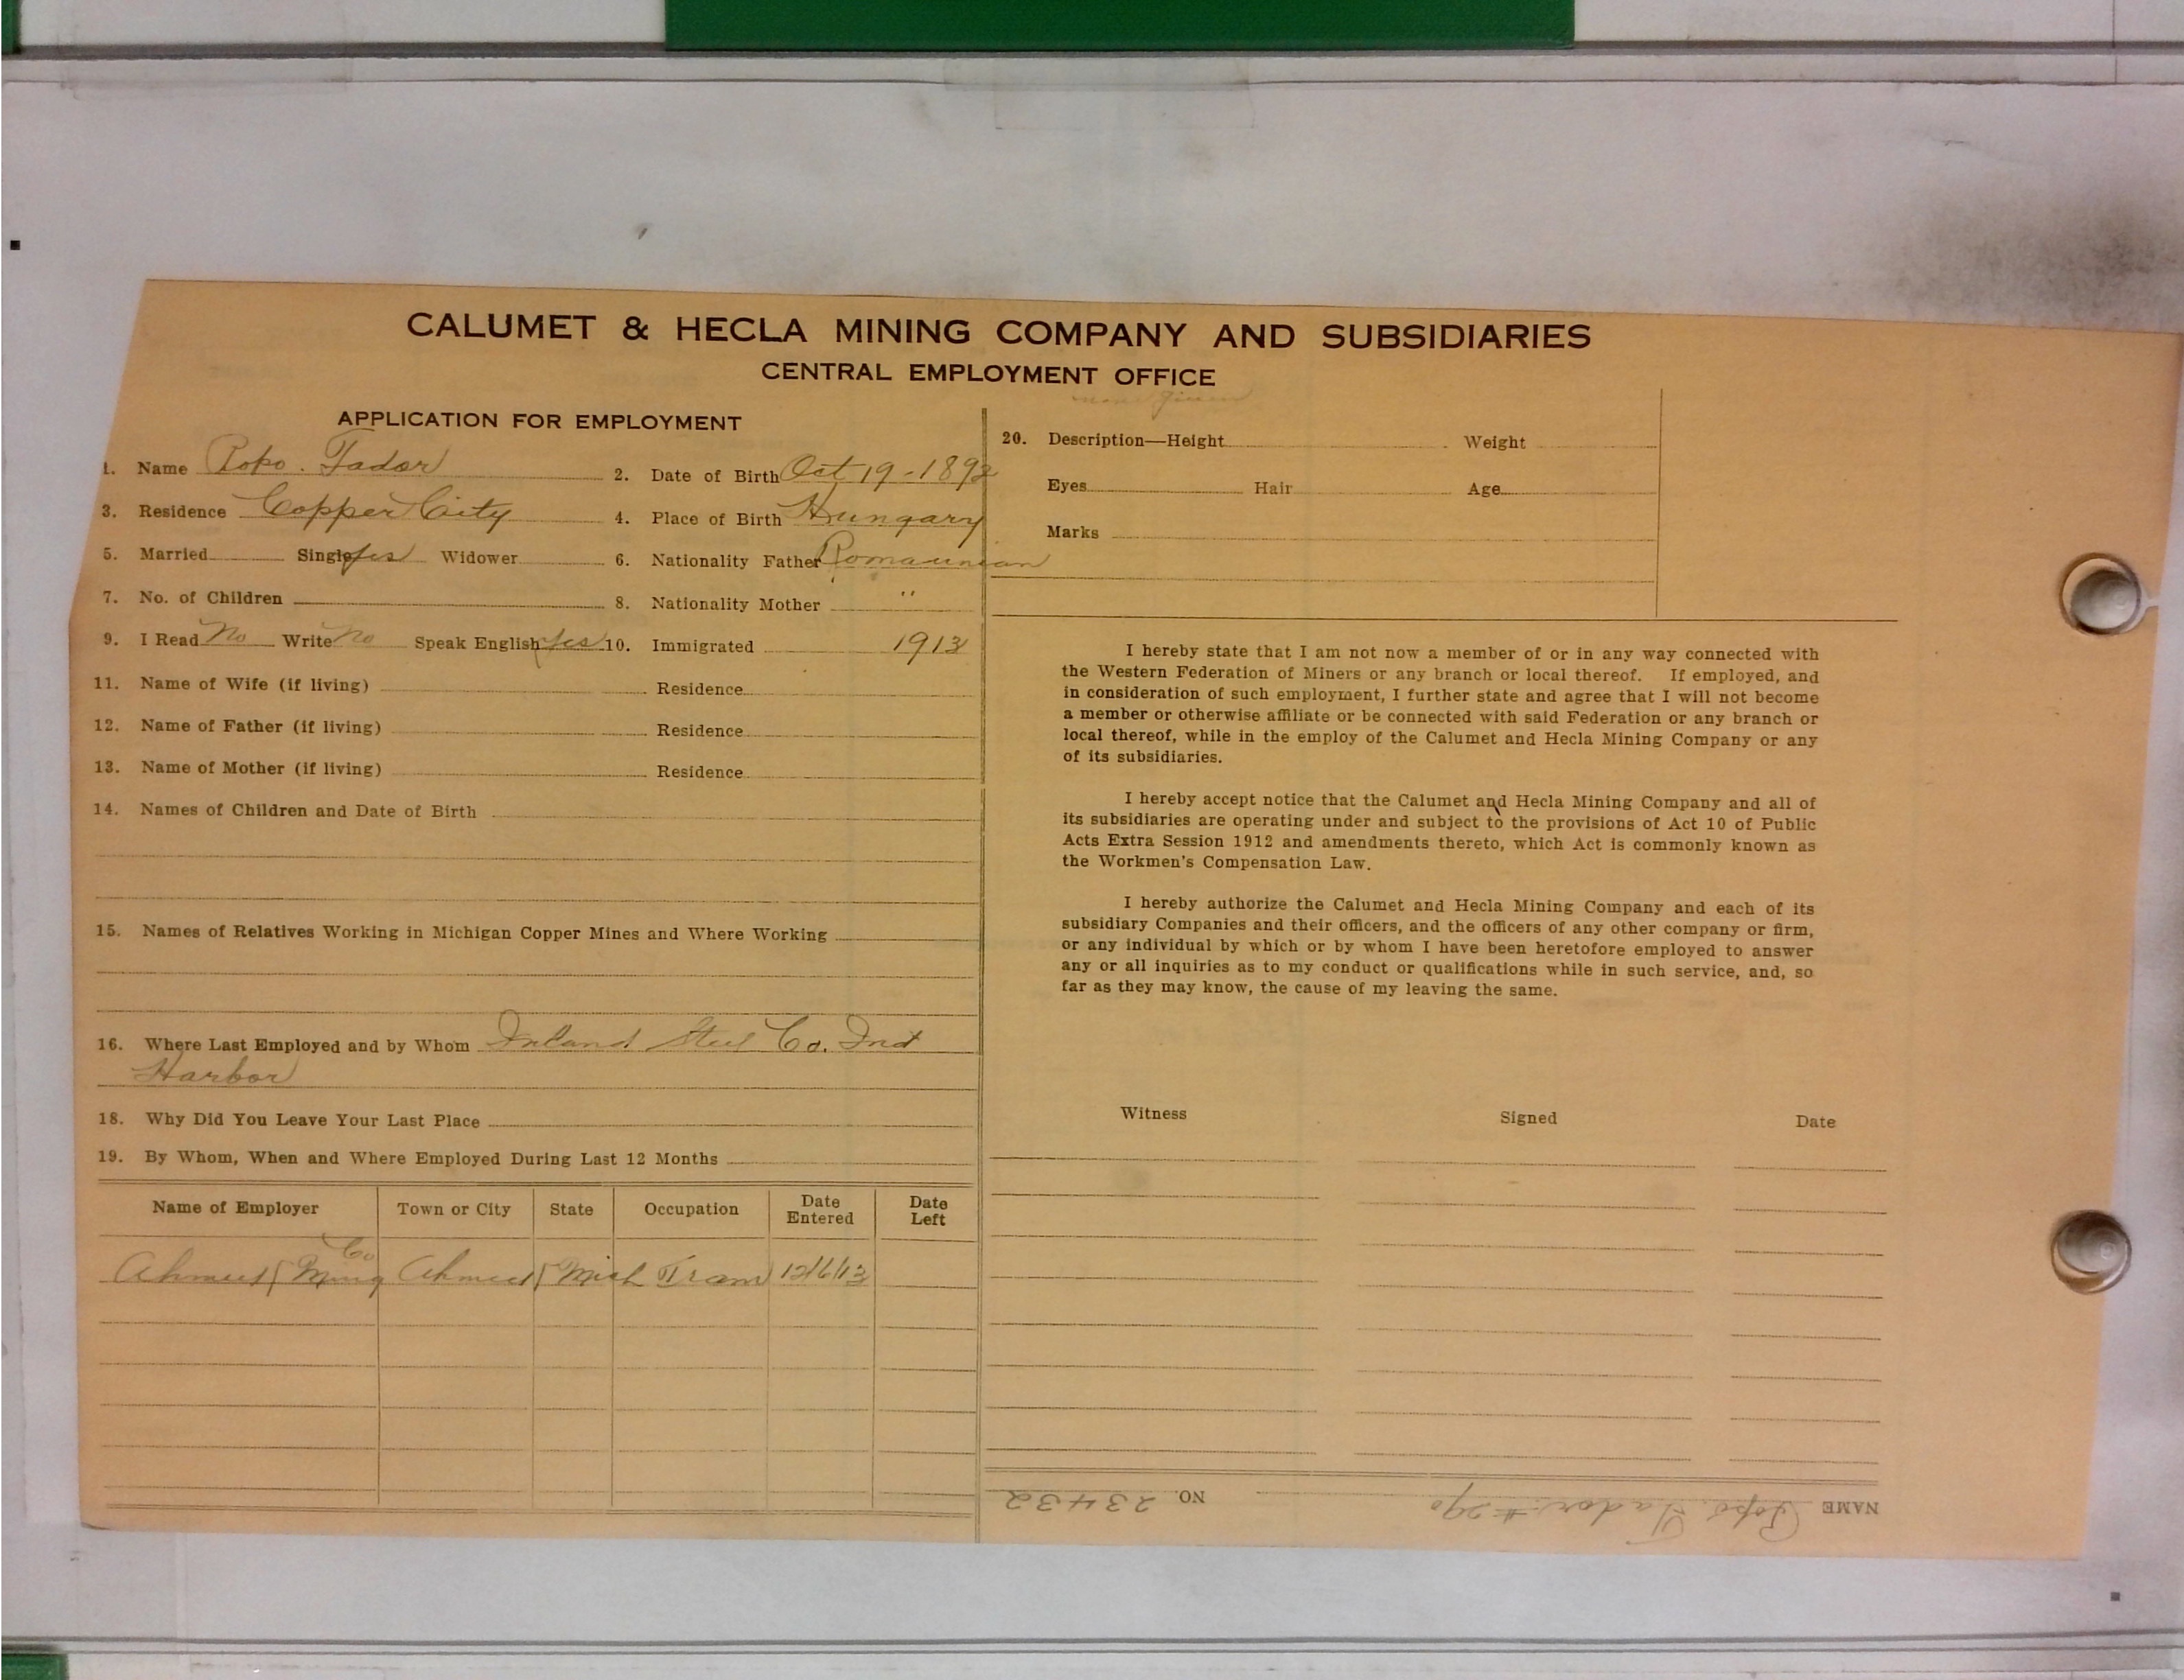 CALUMET & HECLA MINING COMPANY AND SUBSIDIARIES
CENTRAL EMPLOYMENT OFFICE
APPLICATION FOR EMPLOYMENT
1. Name Popo. Tador 2. Date of Birth Oct 19-1892
3. Residence Copper City 4. Place of Birth Hungary
5. Married Single Yes Widower 6. Nationality Father Romaunian
7. No. of Children 8. Nationality Mother "
9. I Read No Write No Speak English Yes 10. Immigrated 1913
11. Name of Wife (if living) Residence
12. Name of Father (if living) Residence
13. Name of Mother (if living) Residence
14. Names of Children and Date of Birth
15. Names of Relatives Working in Michigan Copper Mines and Where Working
16. Where Last Employed and by Whom Inland Steel Co. Ind
Harbor
18. Why Did You Leave Your Last Place
19. By Whom, When and Where Employed During Last 12 Months
Name of Employer Town or City State Occupation Date Entered Date Left
Ahmeek Ming Co Ahmeek Mich Tram 12/6/13
given
20. Description—Height Weight
Eyes Hair Age
Marks
I hereby state that I am not now a member of or in any way connected with
the Western Federation of Miners or any branch or local thereof. If employed, and
in consideration of such employment, I further state and agree that I will not become
a member or otherwise affiliate or be connected with said Federation or any branch or
local thereof, while in the employ of the Calumet and Hecla Mining Company or any
of its subsidiaries.
I hereby accept notice that the Calumet and Hecla Mining Company and all of
its subsidiaries are operating under and subject to the provisions of Act 10 of Public
Acts Extra Session 1912 and amendments thereto, which Act is commonly known as
the Workmen's Compensation Law.
I hereby authorize the Calumet and Hecla Mining Company and each of its
subsidiary Companies and their officers, and the officers of any other company or firm,
or any individual by which or by whom I have been heretofore employed to answer
any or all inquiries as to my conduct or qualifications while in such service, and, so
far as they may know, the cause of my leaving the same.
Witness Signed Date
NAME Popo. Tador. #290 NO. 23432